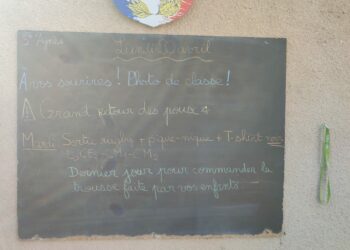 Lundi avril
A vos sourires ! Photo de classe !
⚠ Grand retour des poux
Mardi Sortie rugby + pique-nique + T-shirt
Dernier jour pour commander la
trousse faite par vos enfants